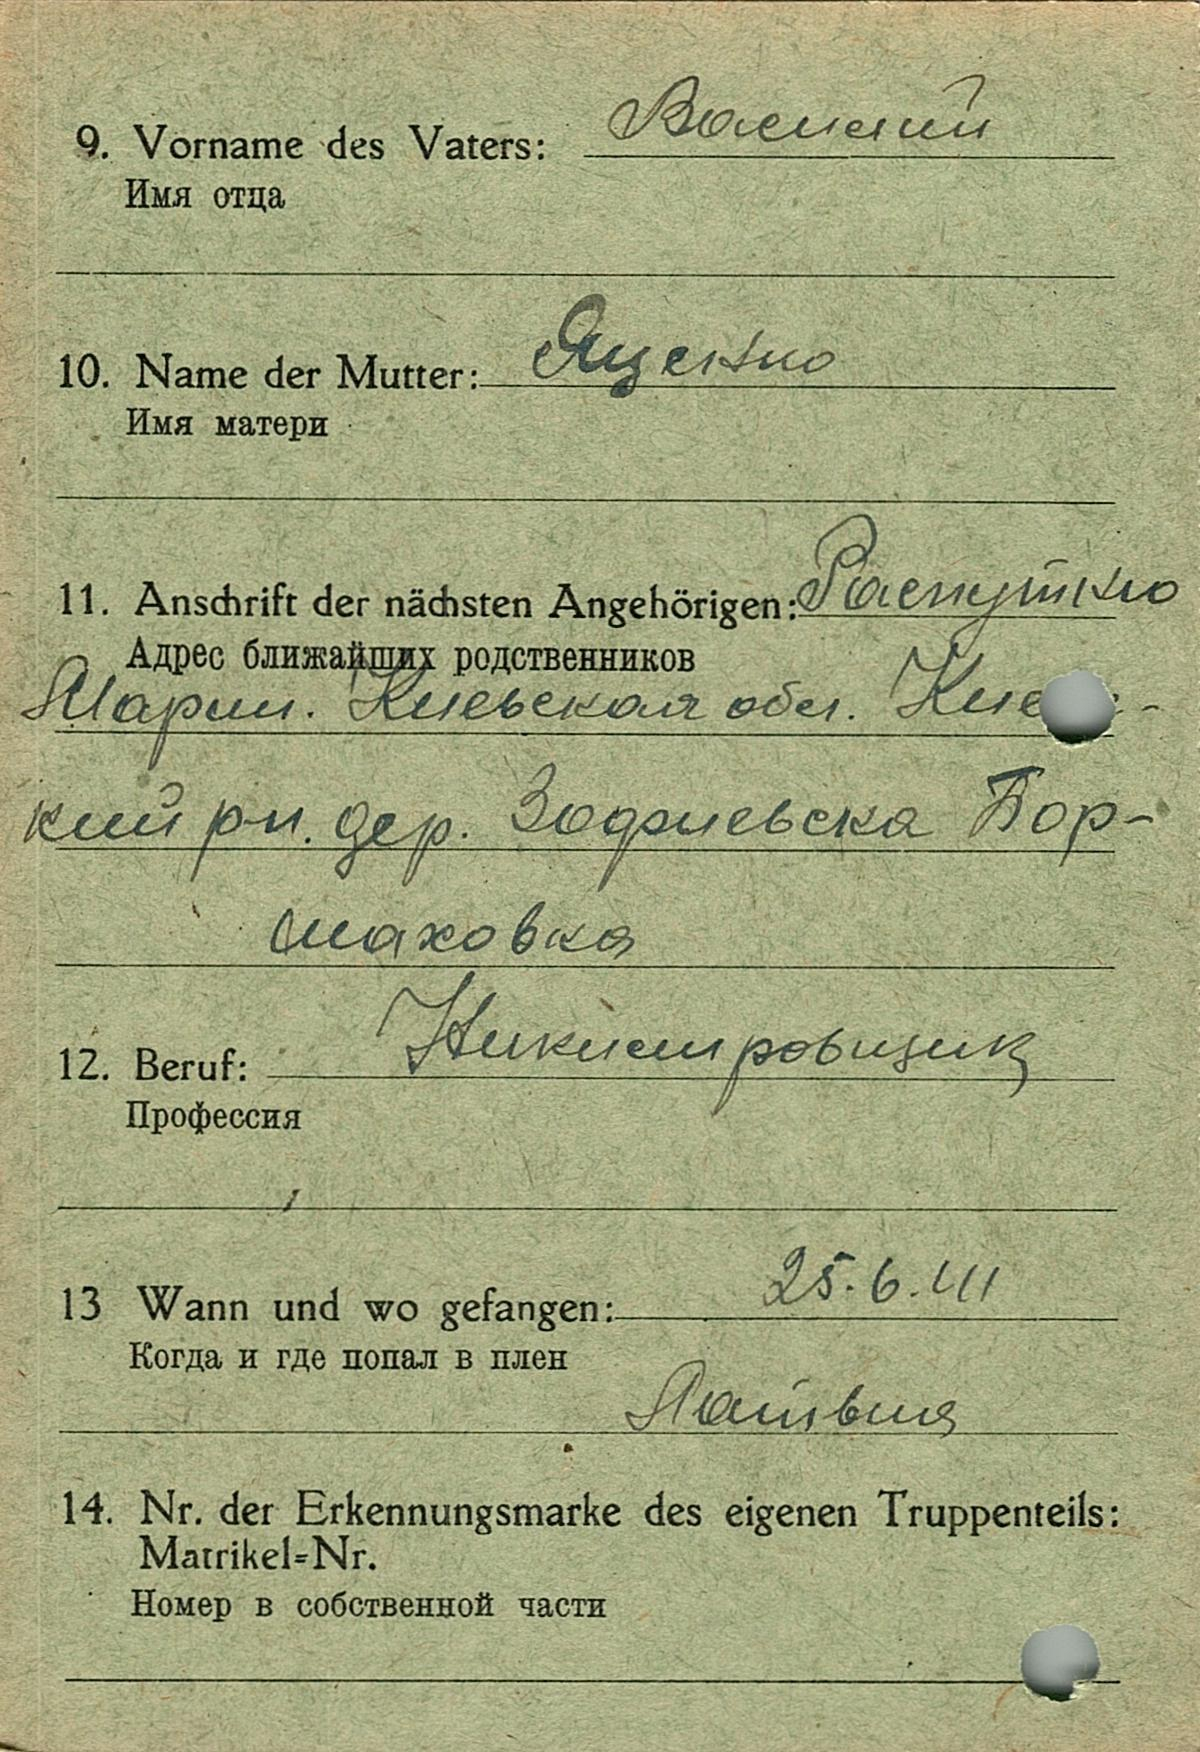 9. Vorname des Vaters: Василий
Имя отца
10. Name der Mutter: Яценко
Имя матери
11. Anschrift der nächsten Angehörigen: Распутко
Адрес ближайших родственников
Мария. Киевская обл.
кий р-н. дер. Зофиевска Бор-
шаховка
12. Beruf: Никилировщик
Профессия
13 Wann und wo gefangen: 25.6.41
Когда и где попал в плен
Латвия
14. Nr. der Erkennungsmarke des eigenen Truppenteils:
Matrikel=Nr.
Номер в собственной части